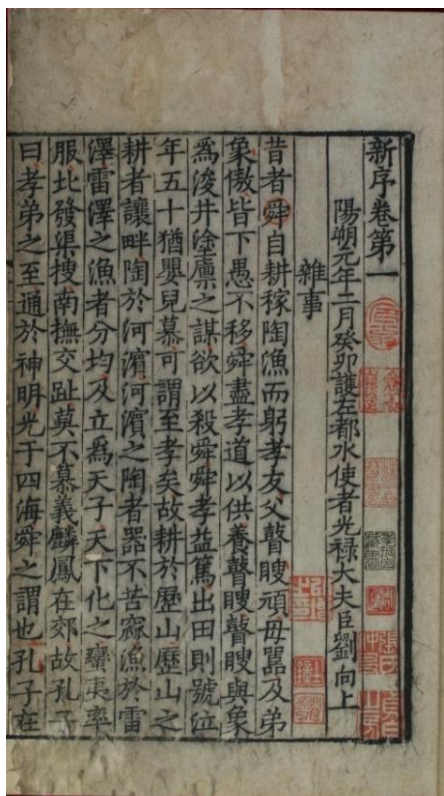 新序卷第一
陽朔元年二月癸卯護左都水使者光禄大夫臣劉向上
雜事
昔者舜自耕稼陶漁而躬孝友父瞽瞍頑母嚚及弟
象傲皆下愚不移舜盡孝道以供養瞽瞍瞽瞍與象
爲浚井塗廪之謀欲以殺舜舜孝益篤出田則號泣
年五十猶嬰兒慕可謂至孝矣故耕於歷山歷山之
耕者讓畔陶於河濵河濵之陶者器不苦窳漁於雷
澤雷澤之漁者分均及立爲天子天下化之蠻夷率
服北發渠搜南撫交趾莫不慕義麟鳳在郊故孔子
曰孝弟之至通於神明光于四海舜之謂也孔子在